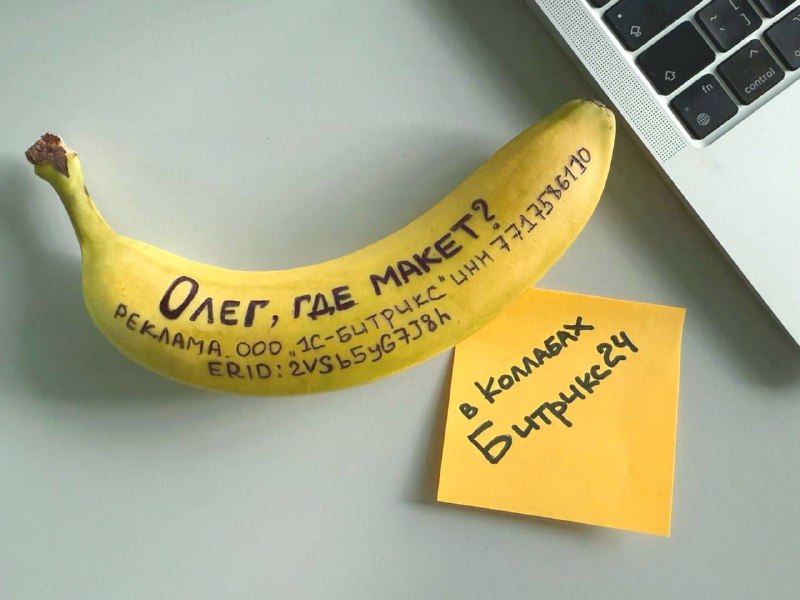 Олег, где макет?
Реклама. ООО „1С-Битрикс" ИНН 7717586110
ERID: 2VSb5yG7J8h
в Коллабах
Битрикс24
fn
control